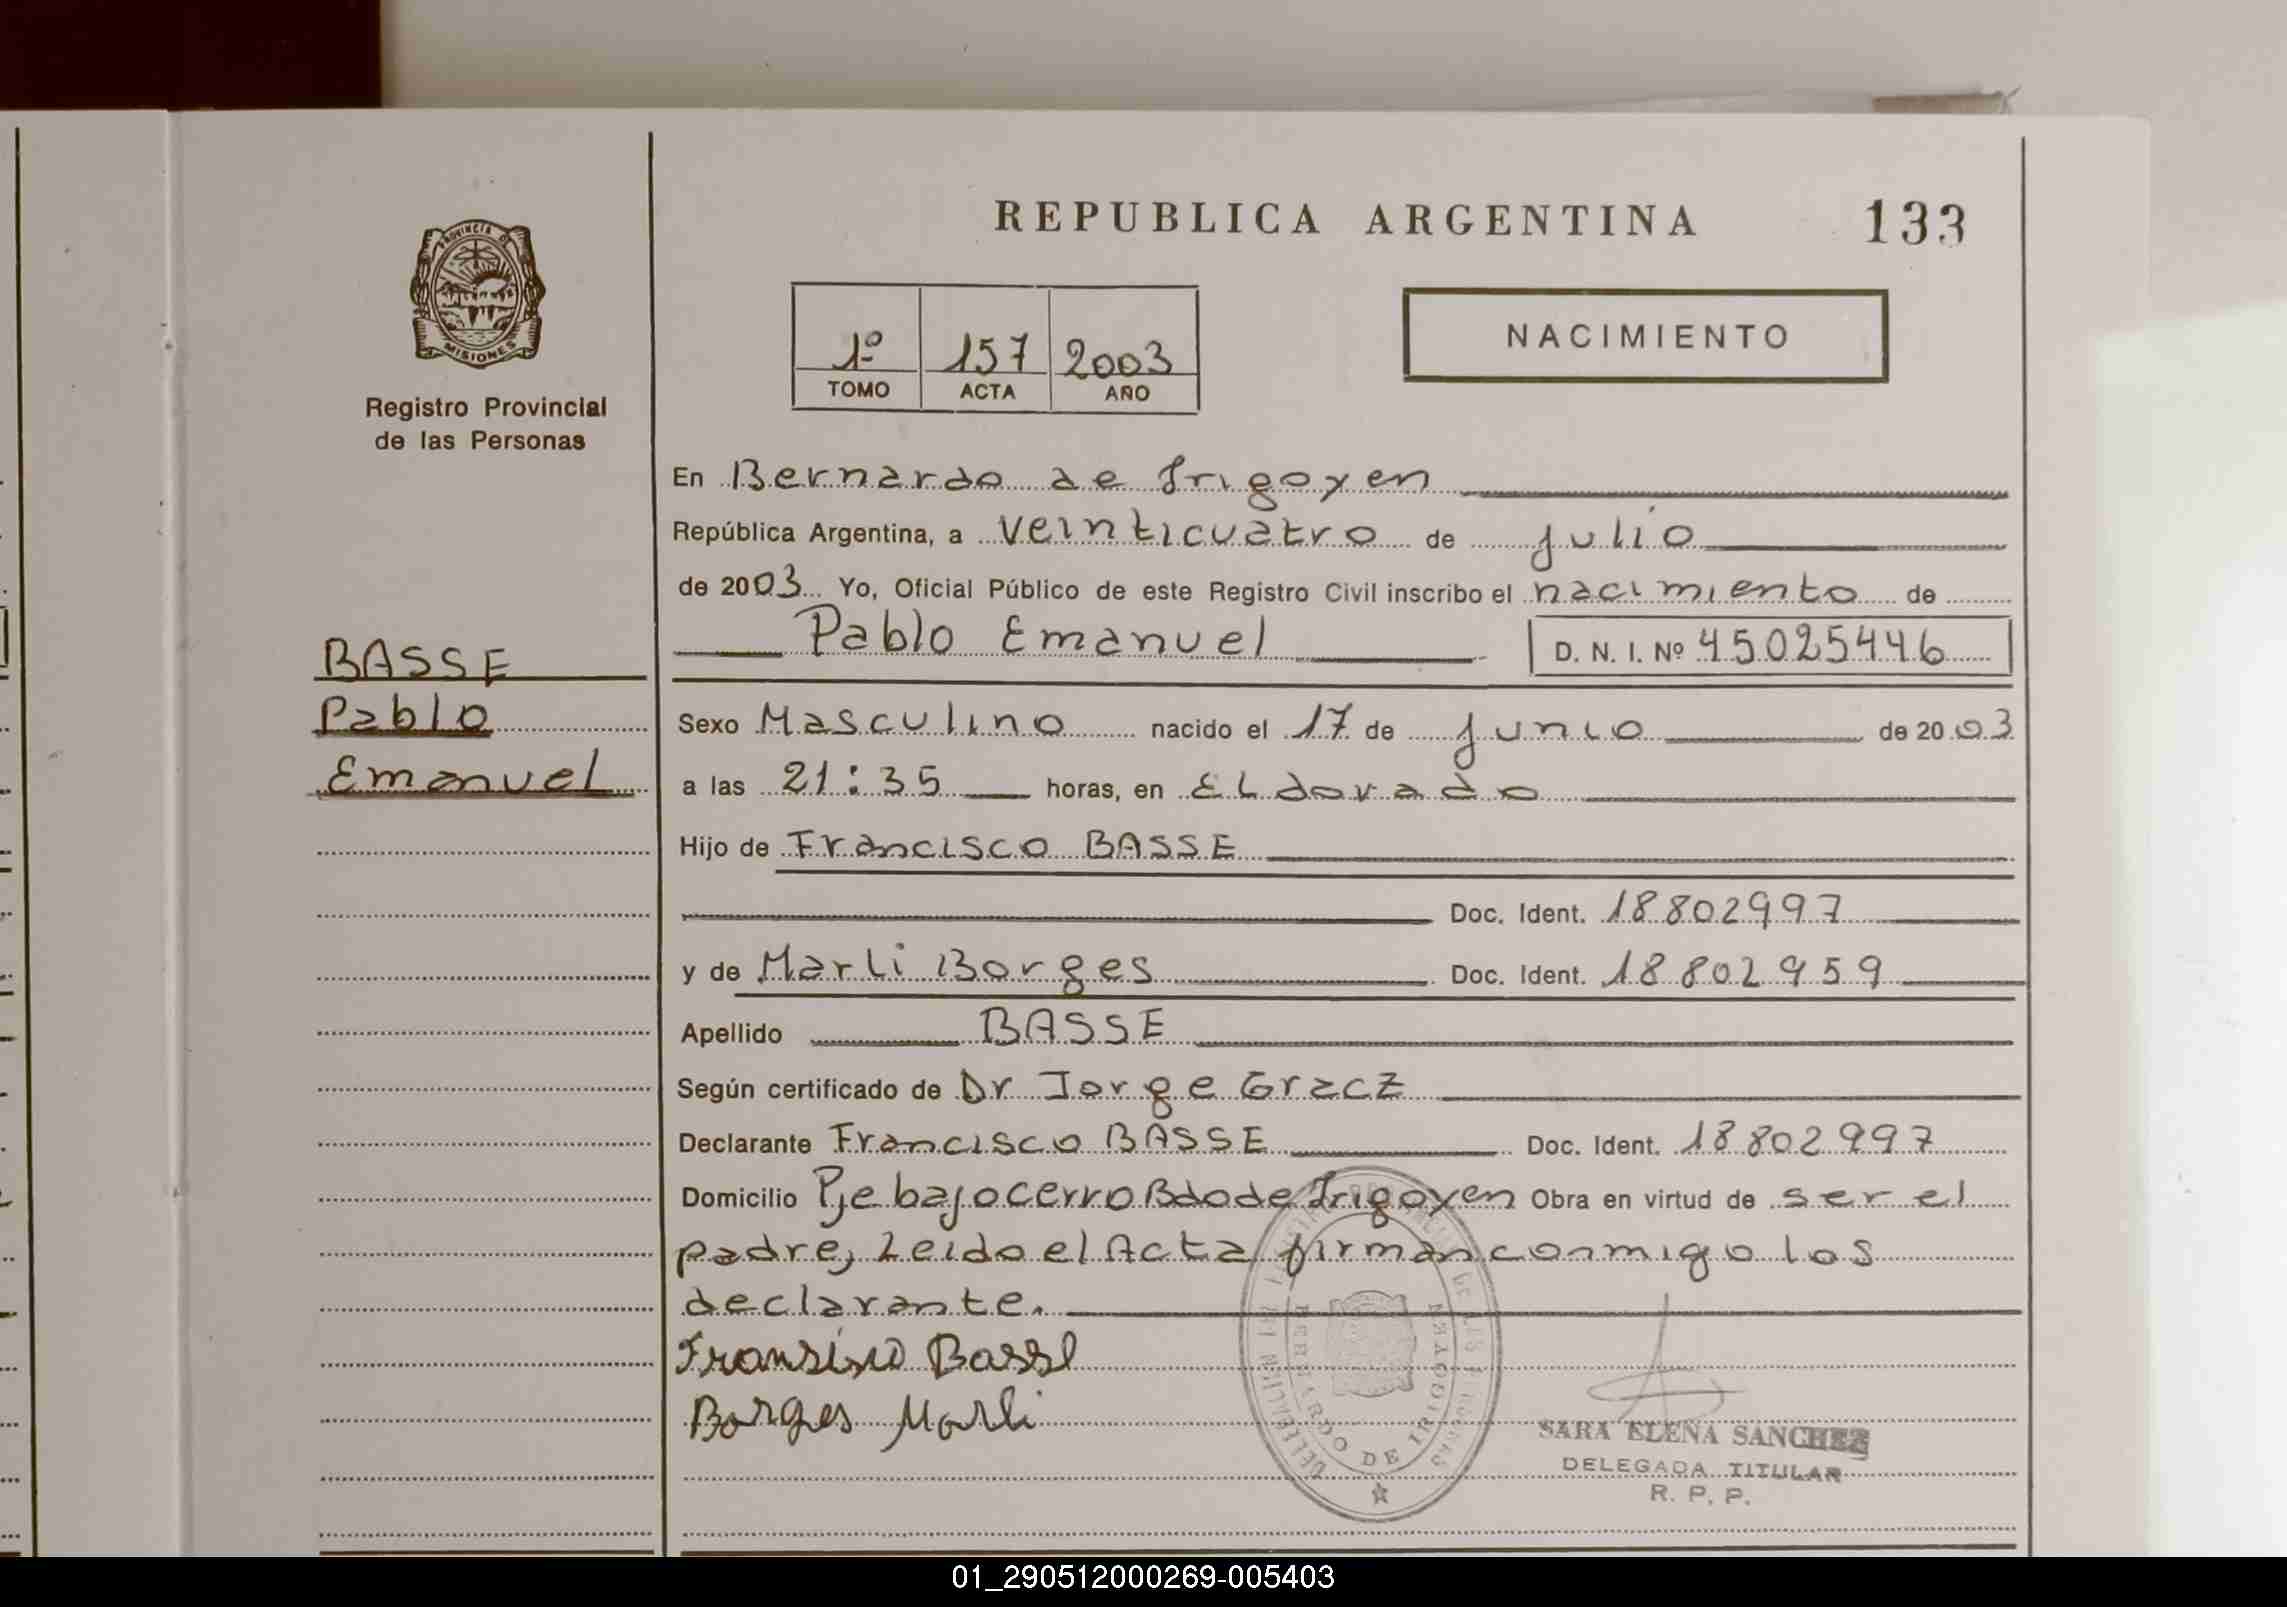 REPUBLICA ARGENTINA 133
PROVINCIA DE
MISIONES
Registro Provincial
de las Personas
1º 157 2003
TOMO ACTA AÑO
NACIMIENTO
En Bernardo de Irigoyen
República Argentina, a veinticuatro de julio
de 2003 Yo, Oficial Público de este Registro Civil inscribo el nacimiento de
Pablo Emanuel D. N. I. Nº 45025446
BASSE
Pablo
Emanuel
Sexo Masculino nacido el 17 de junio de 2003
a las 21:35 horas, en ELdorado
Hijo de Francisco BASSE
Doc. Ident. 18802997
y de Marli Borges Doc. Ident. 18802959
Apellido BASSE
Según certificado de Dr Jorge Gracz
Declarante Francisco BASSE Doc. Ident. 18802997
Domicilio Pje bajo cerro Bdo de Irigoyen Obra en virtud de ser el
padre, Leido el Acta firman conmigo los
declarante.
Fransisco Basse
Borges Marli
BERNARDO DE IRIGOYEN
SARA ELENA SANCHEZ
DELEGADA TITULAR
R. P. P.
01_290512000269-005403